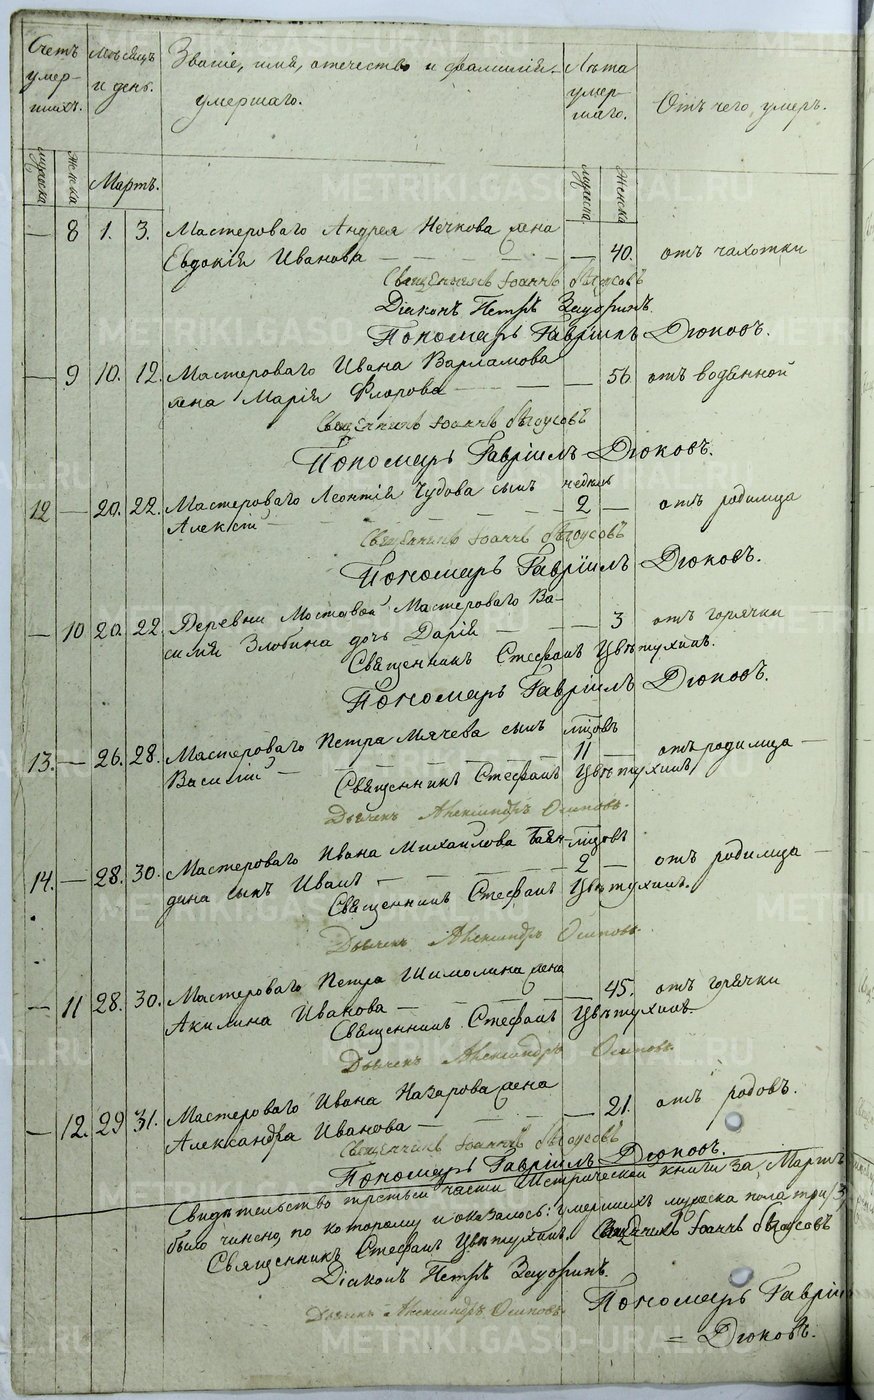 Счетъ умер- шихъ. Мѣсяцъ и день. Званіе, имя, отечество и фамилія умершаго. Лѣта умер- шаго. Отъ чего умеръ.
мужска женска Мартъ. мужска женска
— 8 1. 3. Мастероваго Андрея Нечкова жена
Евдокія Иванова — — 40. отъ чахотки
Священникъ Іоаннъ
Діаконъ Петръ
Пономарь Гавріилъ Дюковъ.
— 9 10. 12. Мастероваго Ивана Варламова
жена Марія Флорова — — 56 отъ водянной
Священникъ Іоаннъ
Пономарь Гавріилъ Дюковъ.
12 — 20. 22. Мастероваго Леонтія Чудова сынъ недѣль
Алексій — 2 — отъ родимца
Священникъ Іоаннъ
Пономарь Гавріилъ Дюковъ.
— 10 20. 22. Деревни Мостовой Мастероваго Ва-
силія Злобина дочь Дарія — — 3 отъ горячки
Священникъ Стефанъ Цвѣтухинъ.
Пономарь Гавріилъ Дюковъ.
13. — 26. 28. Мастероваго Петра Мячева сынъ
Василій — 11 — отъ родимца —
Священникъ Стефанъ Цвѣтухинъ
Дьячекъ Александръ Осиповъ.
14. — 28. 30. Мастероваго Ивана Михайлова
дина сынъ Иванъ — 2 — отъ родимца —
Священникъ Стефанъ Цвѣтухинъ.
Дьячекъ Александръ Осиповъ.
— 11 28. 30. Мастероваго Петра Шимолина жена
Акилина Иванова — — 45. отъ горячки
Священникъ Стефанъ Цвѣтухинъ.
Дьячекъ Александръ Осиповъ.
— 12. 29 31. Мастероваго Ивана Назарова жена
Александра Иванова — — 21. отъ родовъ.
Священникъ Іоаннъ
Пономарь Гавріилъ Дюковъ.
Свидѣтельство третьей части Метрической книги за Мартъ
было чинено, по которому и оказалось: умершихъ мужеска пола три /3/
Священникъ Стефанъ Цвѣтухинъ. Священникъ Іоаннъ
Діаконъ Петръ
Дьячекъ Александръ Осиповъ. Пономарь Гавріилъ
= Дюковъ.
METRIKI.GASO-URAL.RU